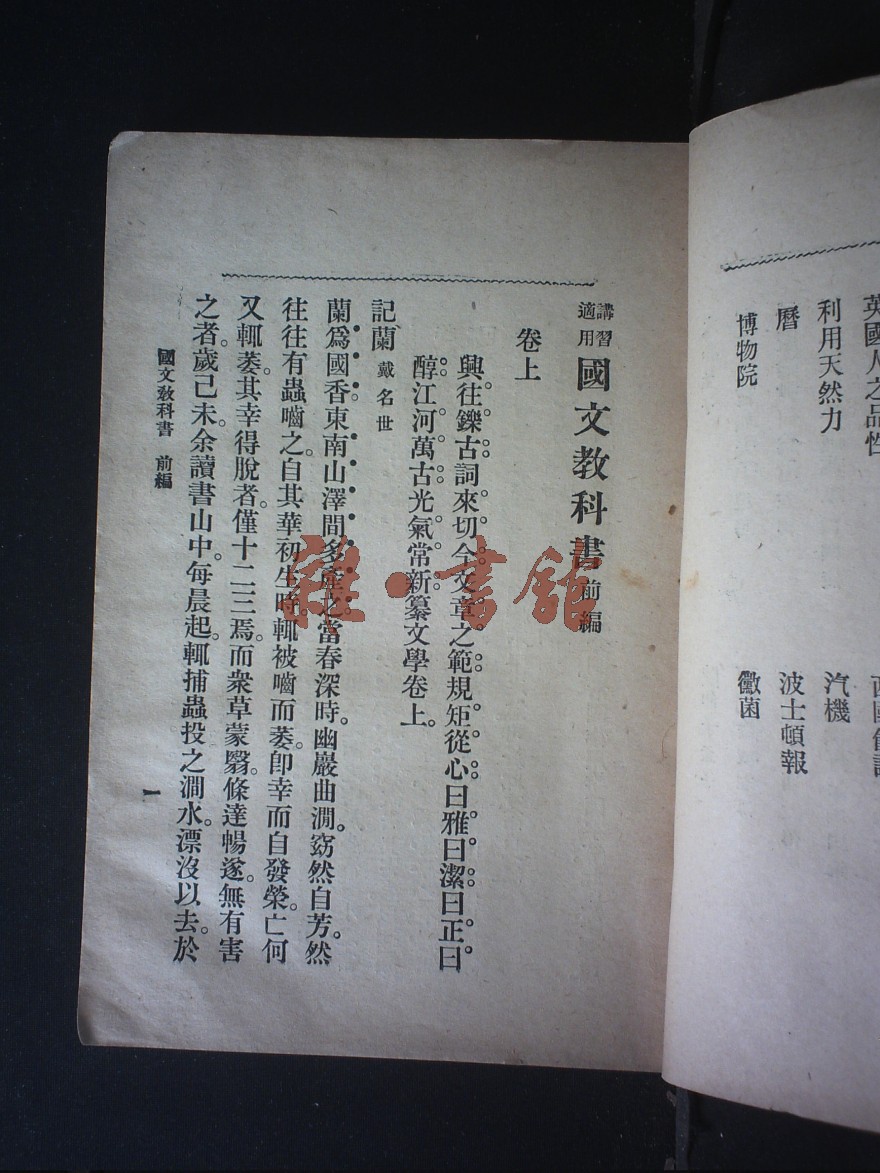 英國人之品性
利用天然力 汽機
曆 波士頓報
博物院 黴菌
講習適用 國文教科書 前編
卷上
興往鑠古。詞來切今。文章之範。規矩從心。曰雅曰潔。曰正曰
醇。江河萬古。光氣常新。纂文學卷上。
記蘭 戴名世
蘭爲國香。東南山澤間多產之。當春深時。幽巖曲澗。窈然自芳。然
往往有蟲嚙之。自其華初生時。輒被嚙而萎。卽幸而自發榮。亡何
又輒萎。其幸得脫者。僅十二三焉。而衆草蒙翳。條達暢遂。無有害
之者。歲己未。余讀書山中。每晨起。輒捕蟲投之澗水。漂沒以去。於
國文敎科書 前編
一
雜·書館